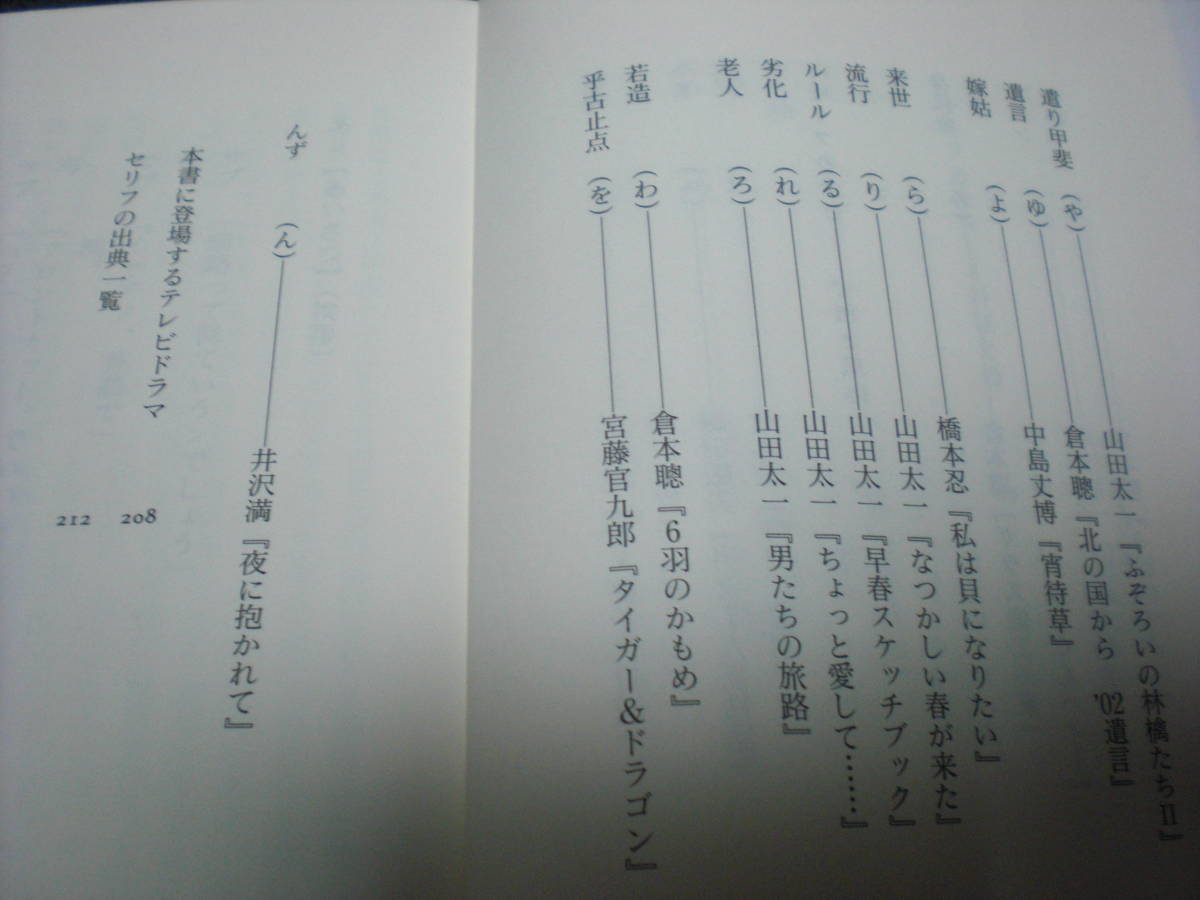 遣り甲斐（や）――山田太一『ふぞろいの林檎たちⅡ』
遺言（ゆ）――倉本聰『北の国から　'02遺言』
嫁姑（よ）――中島丈博『宵待草』
来世（ら）――橋本忍『私は貝になりたい』
流行（り）――山田太一『なつかしい春が来た』
ルール（る）――山田太一『早春スケッチブック』
劣化（れ）――山田太一『ちょっと愛して……』
老人（ろ）――山田太一『男たちの旅路』
若造（わ）――倉本聰『6羽のかもめ』
乎古止点（を）――宮藤官九郎『タイガー&ドラゴン』
んず（ん）――井沢満『夜に抱かれて』
本書に登場するテレビドラマ　208
セリフの出典一覧　212